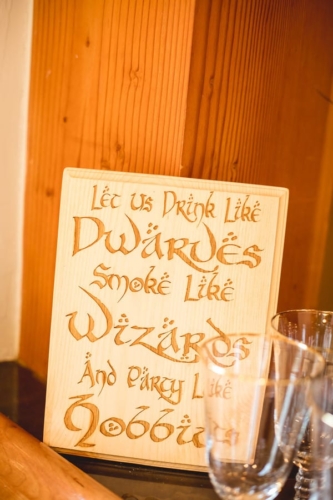 Let us Drink Like
Dwarves
Smoke Like
Wizards
And Party Like
Hobbits